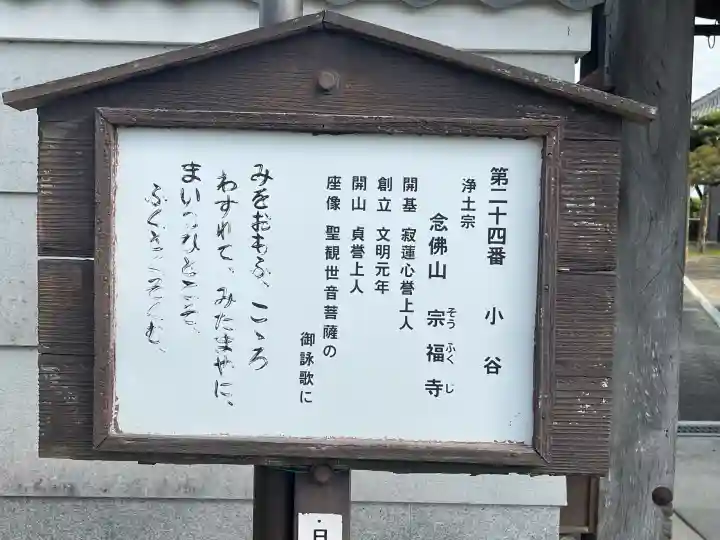 第二十四番 小谷
浄土宗
念佛山 宗福寺
そう ふく じ
開基 寂蓮心誉上人
創立 文明元年
開山 貞誉上人
座像 聖観世音菩薩の
御詠歌に
みをおもふ、こゝろ
わすれて、みたまやに、
まいるひとこそ、
ふくを
む、
・日